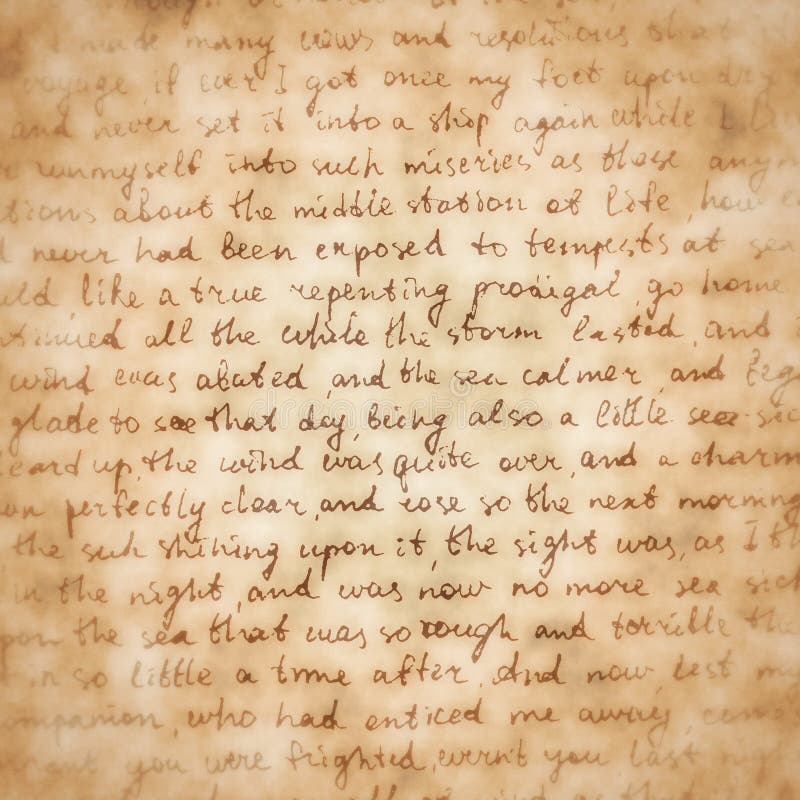 I made many vows and resolutions that
voyage, if ever I got once my foot upon dry
and never set it into a ship again while I
unmyself into such miseries as these any
tions about the middle station of life, how
never had been exposed to tempests at sea
uld like a true repenting prodigal, go home
tinued all the while the storm lasted, and
wind was abated, and the sea calmer, and
glade to see that day, being also a little sea-sic
eard up, the wind was quite over, and a charm
wn perfectly clear, and rose so the next morning
the suh shihing upon it, the sight was, as I th
in the night, and was now no more sea sick
pon the sea that was so rough and terrille the
in so little a time after. And now, lest my
ompanion, who had enticed me away, come
you were frighted, wern't you last night